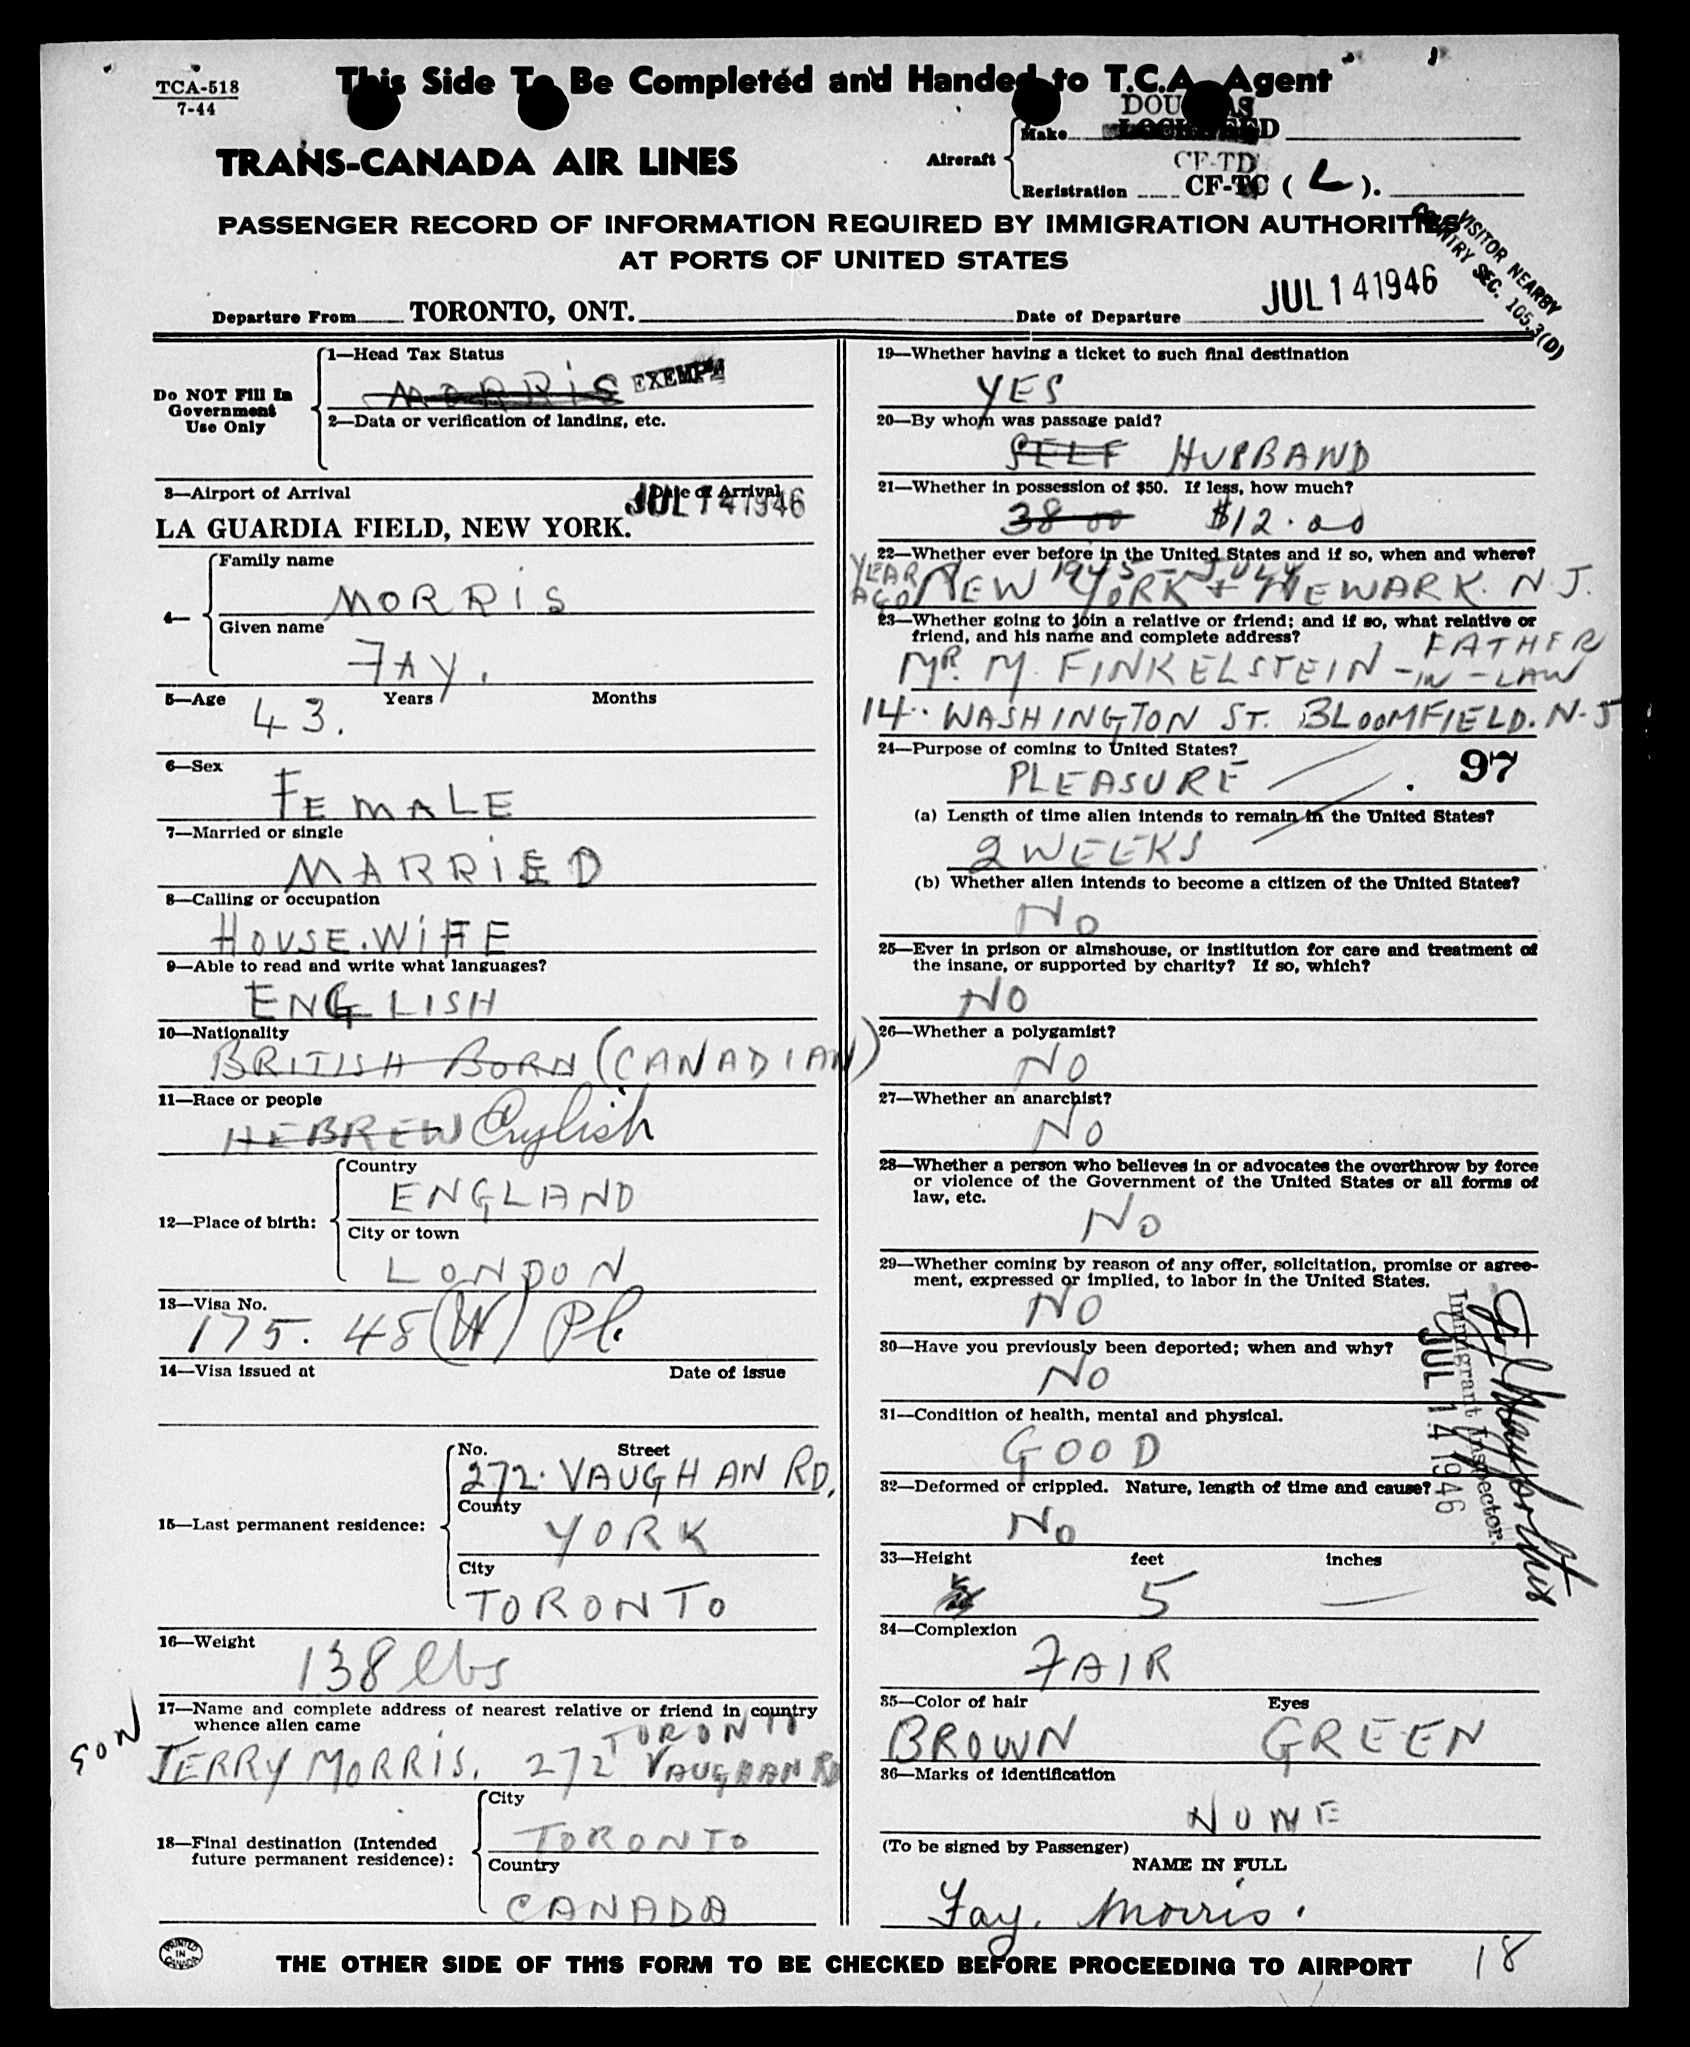 This Side To Be Completed and Handed to T.C.A. Agent
TCA-518
7-44
TRANS-CANADA AIR LINES
Aircraft
Make DOUGLAS
LOCKHEED
CF-TD
Registration CF-TC ( L ).
PASSENGER RECORD OF INFORMATION REQUIRED BY IMMIGRATION AUTHORITIES
AT PORTS OF UNITED STATES
VISITOR NEARBY
COUNTRY SEC. 105.3(D)
Departure From TORONTO, ONT.
Date of Departure JUL 14 1946
Do NOT Fill In
Government
Use Only
1—Head Tax Status
MORRiS EXEMPT
2—Data or verification of landing, etc.
3—Airport of Arrival
Date of Arrival
JUL 14 1946
LA GUARDIA FIELD, NEW YORK.
4—
Family name
MORRiS
Given name
FAY.
5—Age 43. Years Months
6—Sex
FEMALE
7—Married or single
MARRiED
8—Calling or occupation
HOUSE.WiFE
9—Able to read and write what languages?
ENGLISH
10—Nationality
BRITISH BORN (CANADIAN)
11—Race or people
HEBREW English
12—Place of birth:
Country
ENGLAND
City or town
LONDON
13—Visa No.
175. 48 (W) Pl.
14—Visa issued at Date of issue
15—Last permanent residence:
No. Street
272. VAUGHAN RD.
County
YORK
City
TORONTO
16—Weight
138 lbs
17—Name and complete address of nearest relative or friend in country
whence alien came
TORONTO
SON
JERRY MORRiS. 272 VAUGHAN RD
18—Final destination (Intended
future permanent residence):
City
TORONTO
Country
CANADA
19—Whether having a ticket to such final destination
YES
20—By whom was passage paid?
SELF HUSBAND
21—Whether in possession of $50. If less, how much?
38 00 $12.00
22—Whether ever before in the United States and if so, when and where?
YEAR AGO
1945 - JULY
NEW YORK + NEWARK. N.J.
23—Whether going to join a relative or friend; and if so, what relative or
friend, and his name and complete address?
MR. M. FINKELSTEIN - FATHER
-IN-LAW
14. WASHINGTON ST. BLOOMFIELD. N.J
24—Purpose of coming to United States?
PLEASURE 97
(a) Length of time alien intends to remain in the United States?
2 WEEKS
(b) Whether alien intends to become a citizen of the United States?
No
25—Ever in prison or almshouse, or institution for care and treatment of
the insane, or supported by charity? If so, which?
NO
26—Whether a polygamist?
NO
27—Whether an anarchist?
NO
28—Whether a person who believes in or advocates the overthrow by force
or violence of the Government of the United States or all forms of
law, etc.
No
29—Whether coming by reason of any offer, solicitation, promise or agree-
ment, expressed or implied, to labor in the United States.
NO
30—Have you previously been deported; when and why?
NO
31—Condition of health, mental and physical.
GOOD
32—Deformed or crippled. Nature, length of time and cause?
No
JUL 14 1946
Immigrant Inspector.
33—Height feet inches
5 —
34—Complexion
FAIR
35—Color of hair Eyes
BROWN GREEN
36—Marks of identification
NONE
(To be signed by Passenger)
NAME IN FULL
Fay. Morris.
PRINTED IN CANADA
THE OTHER SIDE OF THIS FORM TO BE CHECKED BEFORE PROCEEDING TO AIRPORT
18